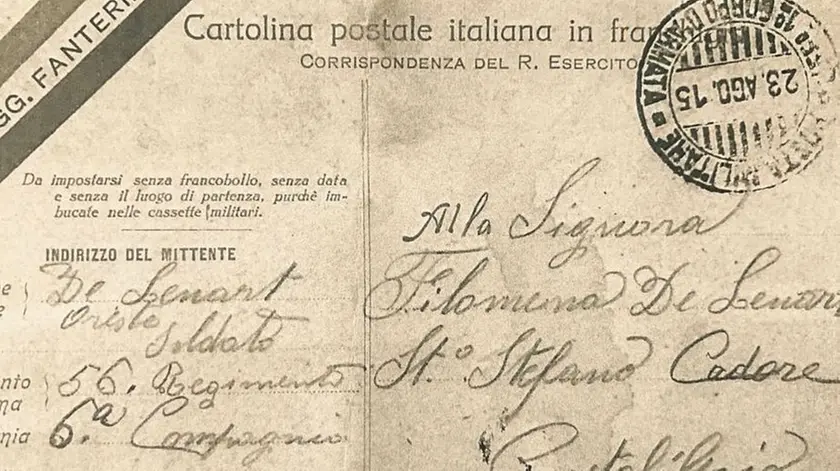 GG. FANTERI
Cartolina postale italiana in fran
CORRISPONDENZA DEL R. ESERCITO
POSTA MILITARE 1º CORPO D'ARMATA
23. AGO. 15
Da impostarsi senza francobollo, senza data
e senza il luogo di partenza, purchè im-
bucate nelle cassette militari.
INDIRIZZO DEL MITTENTE
De Lenart
Oreste
Soldato
nto 56. Regimento
ma
nia 6.a Compagnia
Alla Signora
Filomena De Lenar
St.o Stefano Cadore